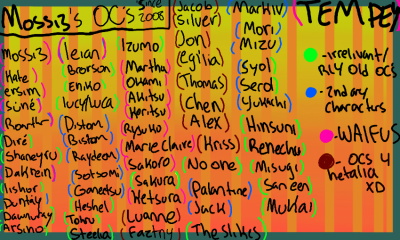 Mossi3's OC's since 2008
TEMPEY
Mossi3
Kate
ersim
Diré
Shaneyru
Dakrein
Arsino
Ieian
Boorson
Eniko
lucyluca
Distom
Bistom
Raydeon
Heshel
Tohru
Steelia
Izumo
Martha
Okami
Akitsu
Haritsu
Ryuko
Marie Claire
Sakoro
Sakura
Hetsura
Luanne
Jacob
Silver
Jon
Egilia
Thomas
Chen
Alex
Kriss
No one
Palantine
Jack
The Sliks
Markiv
Mori
Mizu
Syol
Serol
Yukachi
Hinsuni
Renechu
Misugi
Mukai
-irrelivant/
Rly old ocs
-2ndary
characturs
-WAIFUS
- OCs 4
hetalia
XD